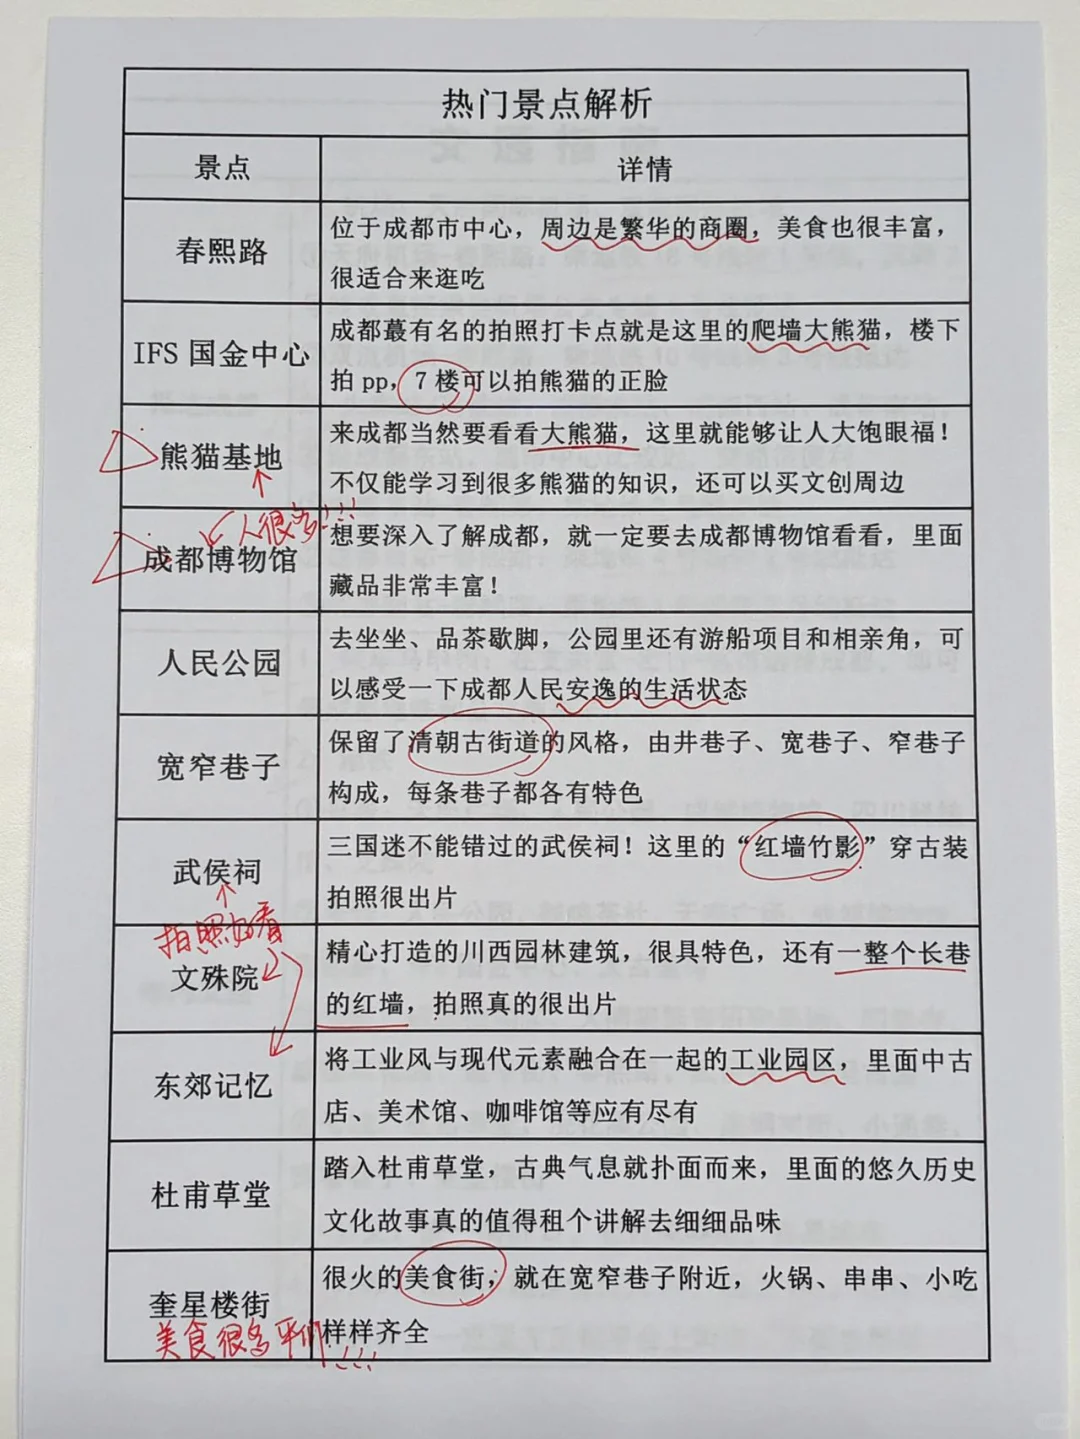 热门景点解析
景点
详情
春熙路
位于成都市中心，周边是繁华的商圈，美食也很丰富，
很适合来逛吃
IFS 国金中心
成都蕞有名的拍照打卡点就是这里的爬墙大熊猫，楼下
拍 pp，7 楼可以拍熊猫的正脸
熊猫基地
来成都当然要看看大熊猫，这里就能够让人大饱眼福！
不仅能学习到很多熊猫的知识，还可以买文创周边
人很多!!!!
成都博物馆
想要深入了解成都，就一定要去成都博物馆看看，里面
藏品非常丰富！
人民公园
去坐坐、品茶歇脚，公园里还有游船项目和相亲角，可
以感受一下成都人民安逸的生活状态
宽窄巷子
保留了清朝古街道的风格，由井巷子、宽巷子、窄巷子
构成，每条巷子都各有特色
武侯祠
三国迷不能错过的武侯祠！这里的“红墙竹影”穿古装
拍照很出片
拍照好看
文殊院
精心打造的川西园林建筑，很具特色，还有一整个长巷
的红墙，拍照真的很出片
东郊记忆
将工业风与现代元素融合在一起的工业园区，里面中古
店、美术馆、咖啡馆等应有尽有
杜甫草堂
踏入杜甫草堂，古典气息就扑面而来，里面的悠久历史
文化故事真的值得租个讲解去细细品味
奎星楼街
很火的美食街，就在宽窄巷子附近，火锅、串串、小吃
样样齐全
美食很多平们!!!